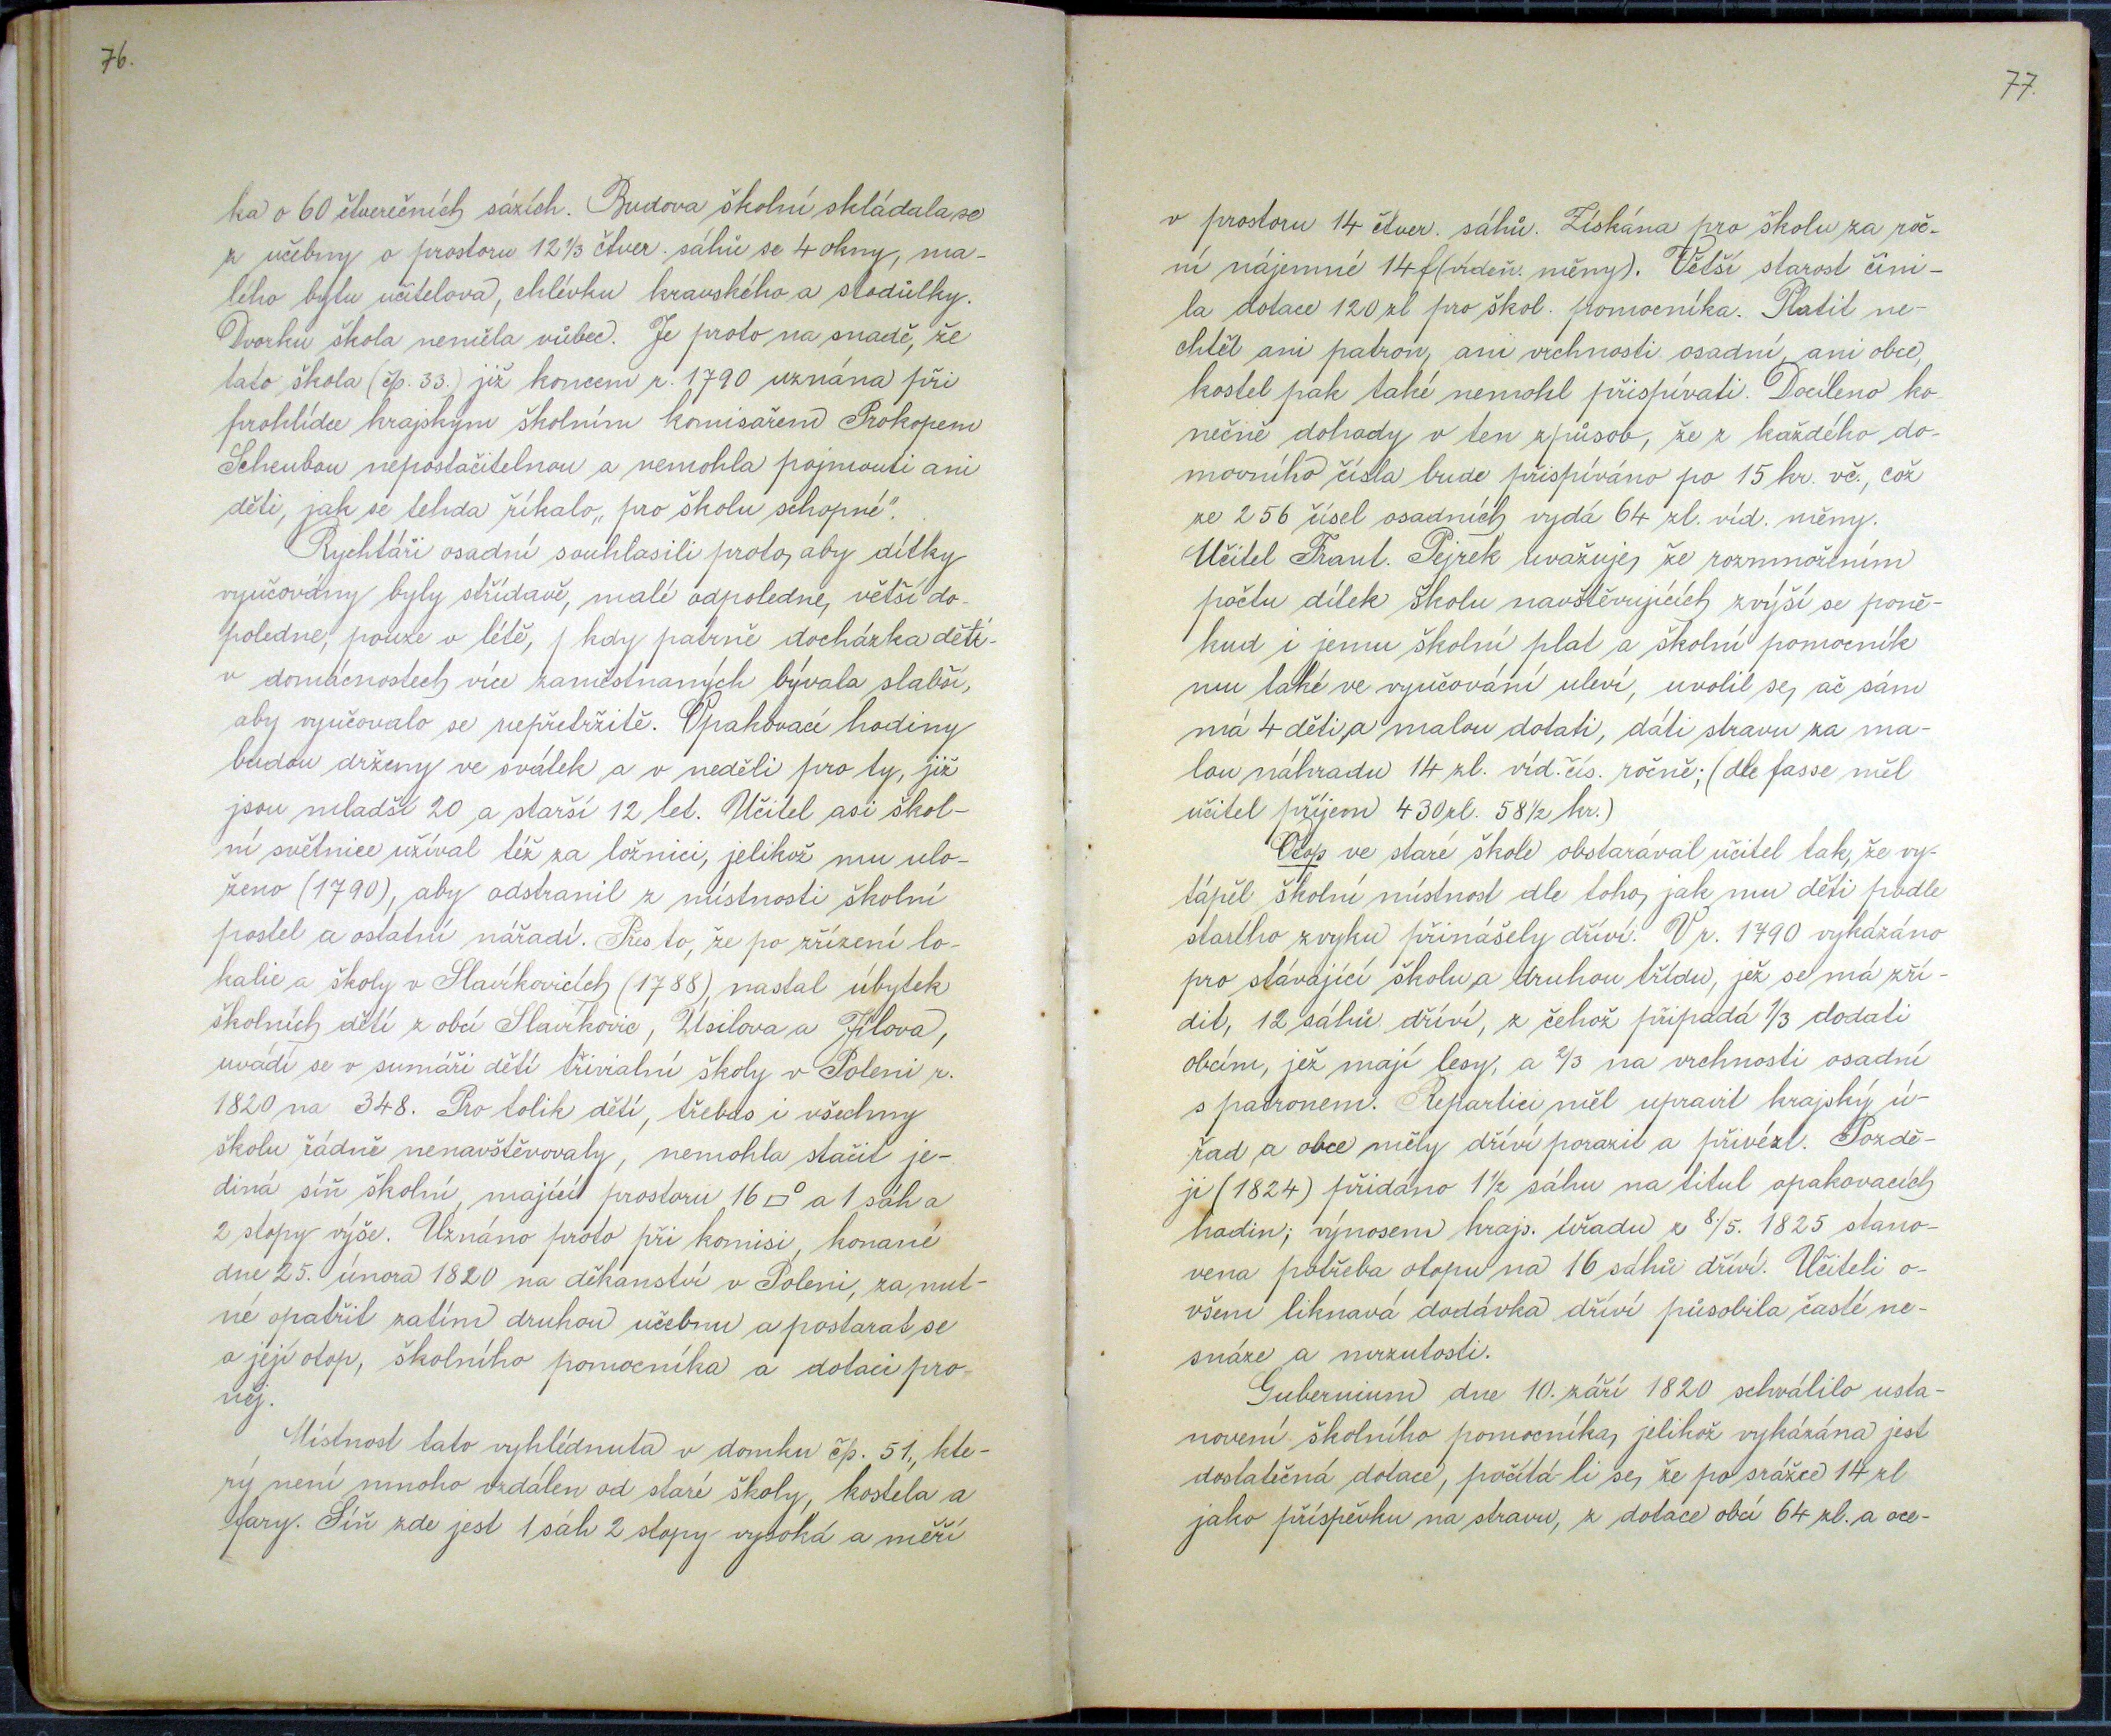 76.
ka o 60 čtverečních sázích. Budova školní skládala se
z učebny o prostoru 12 1/3 čtver. sáhů se 4 okny, ma-
lého bytu učitelova, chlévku kravského a stodůlky.
Dvorku škola neměla vůbec. Je proto na snadě, že
tato škola (čp. 33.) již koncem r. 1790 uznána při
prohlídce krajským školním komisařem Prokopem
Scheubou nepostačitelnou a nemohla pojmouti ani
děti, jak se tehda říkalo „pro školu schopné".
Rychtáři osadní souhlasili proto, aby dítky
vyučovány byly střídavě, malé odpoledne, větší do-
poledne, pouze v létě, kdy patrně docházka dětí-
v domácnostech více zaměstnaných bývala slabší,
aby vyučovalo se nepřetržitě. Opakovací hodiny
budou drženy ve svátek a v neděli pro ty, již
jsou mladší 20 a starší 12 let. Učitel asi škol-
ní světnice užíval též za ložnici, jelikož mu ulo-
ženo (1790), aby odstranil z místnosti školní
postel a ostatní nářadí. Přes to, že po zřízení lo-
kalie a školy v Slavíkovicích (1788), nastal úbytek
školních dětí z obcí Slavíkovic, Úsilova a Jílova,
uvádí se v sumáři dětí triviální školy v Poleni r.
1820 na 348. Pro tolik dětí, třebas i všechny
školu řádně nenavštěvovaly, nemohla stačit je-
diná síň školní, mající prostoru 16 □° a 1 sáh a
2 stopy výše. Uznáno proto při komisi, konané
dne 25. února 1820 na děkanství v Poleni, za nut-
né opatřit zatím druhou učebnu a postarat se
o její otop, školního pomocníka a dotaci pro
něj.
Místnost tato vyhlédnuta v domku čp. 51., kte-
rý není mnoho vzdálen od staré školy, kostela a
fary. Síň zde jest 1 sáh 2 stopy vysoká a měří
77.
v prostoru 14 čtver. sáhů. Získána pro školu za roč-
ní nájemné 14 f (vídeň. měny). Větší starost čini-
la dotace 120 zl pro škol. pomocníka. Platit ne-
chtěl ani patron, ani vrchnosti osadní, ani obce,
kostel pak také nemohl přispívati. Docíleno ko
nečně dohady v ten způsob, že z každého do-
movního čísla bude přispíváno po 15 kr. vč., což
ze 256 čísel osadních vydá 64 zl. víd. měny.
Učitel Frant. Pejrek uvažuje, že rozmnožením
počtu dítek školu navštěvujících zvýší se poně-
kud i jemu školní plat a školní pomocník
mu také ve vyučování uleví, uvolil se, ač sám
má 4 děti, a malou dotati, dáti stravu za ma-
lou náhradu 14 zl. víd. čís. ročně; (dle fasse měl
učitel příjem 430 zl. 58 1/2 kr.)
Otop ve staré škole obstarával učitel tak, že vy-
tápěl školní místnost dle toho, jak mu děti podle
starého zvyku přinášely dříví. V r. 1790 vykázáno
pro stávající školu a druhou třídu, jež se má zří-
dit, 12 sáhů dříví, z čehož připadá 1/3 dodati
obcím, jež mají lesy, a 2/3 na vrchnosti osadní
s patronem. Repartici měl upravit krajský ú-
řad a obce měly dříví porazit a přivézt. Pozdě-
ji (1824) přidáno 1 1/2 sáhu na titul opakovacích
hodin; výnosem krajs. úřadu z 8./5. 1825 stano-
vena potřeba otopu na 16 sáhů dříví. Učiteli o-
všem liknavá dodávka dříví působila časté ne-
snáze a mrzutosti.
Gubernium dne 10. září 1820 schválilo usta-
novení školního pomocníka, jelikož vykázána jest
dostatečná dotace, počítá-li se, že po srážce 14 zl
jako příspěvku na stravu, z dotace obcí 64 zl. a oce-